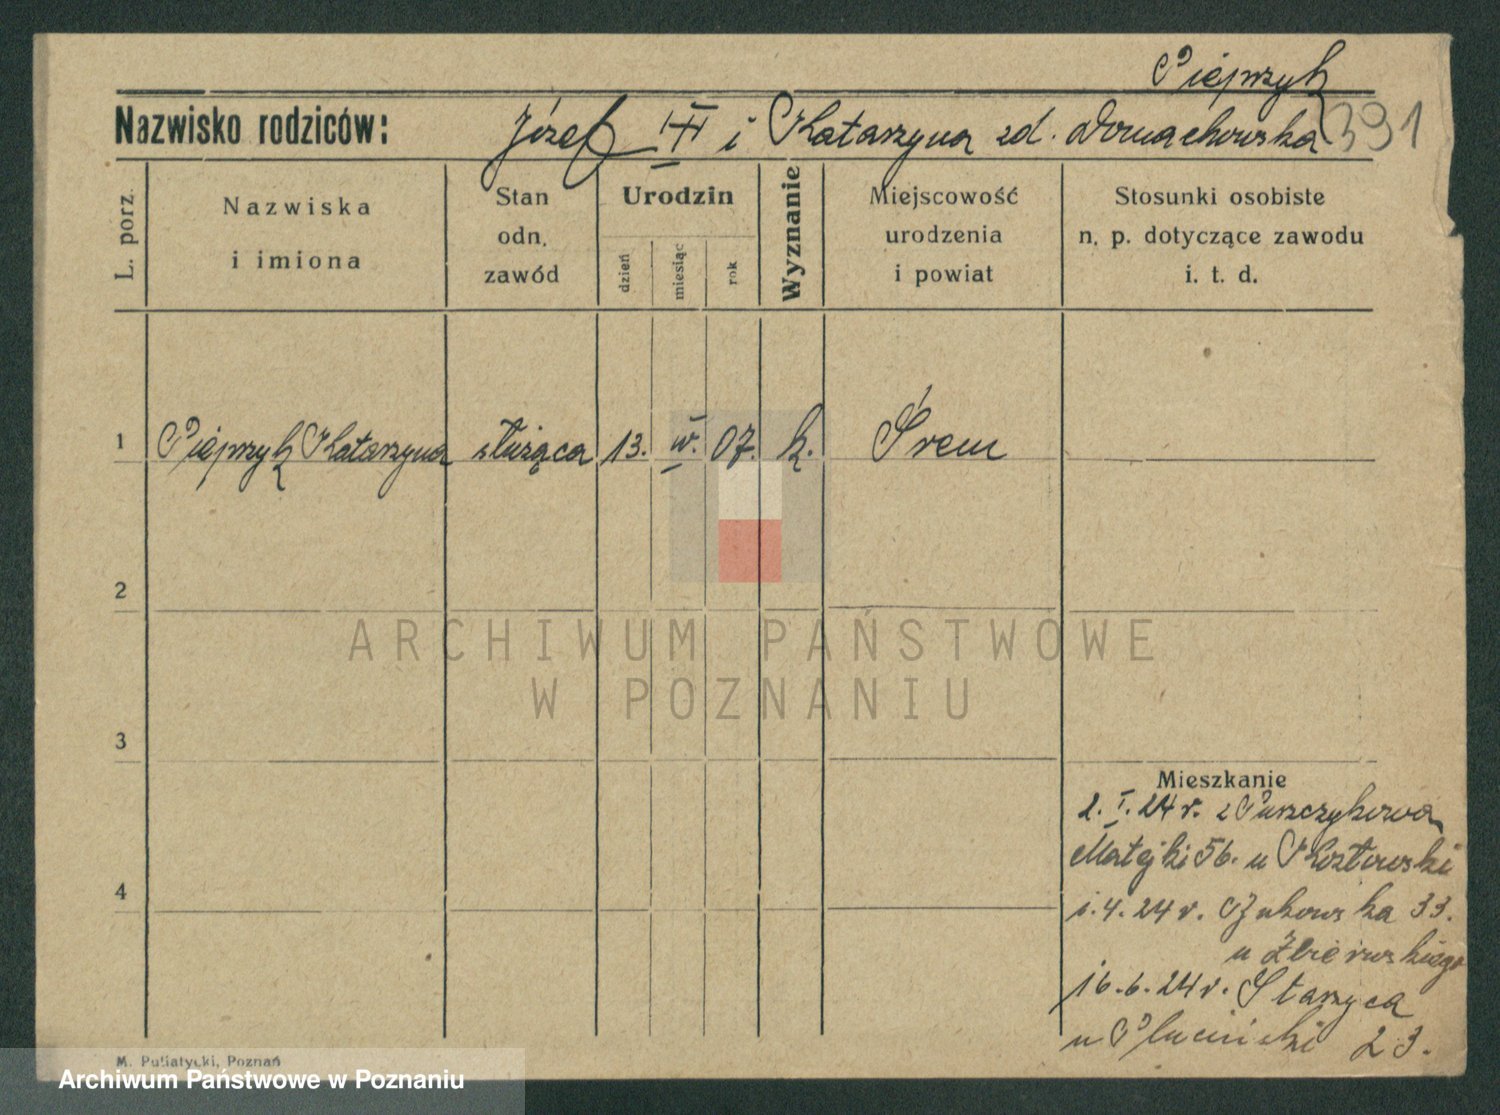 Pieprzyk
Nazwisko rodziców: Józef i Katarzyna zd. Domachowska 391
L. porz.
Nazwiska i imiona
Stan odn. zawód
Urodzin
dzień
miesiąc
rok
Wyznanie
Miejscowość urodzenia i powiat
Stosunki osobiste n. p. dotyczące zawodu i. t. d.
1 Pieprzyk Katarzyna służąca 13. IV. 07. k. Śrem
2
ARCHIWUM PAŃSTWOWE
W POZNANIU
3
Mieszkanie
2. I. 24 r. z Puszczykowa
Matejki 56. u Kozłowski
1. 4. 24 r. 33.
u
4
16. 6. 24 r.
u 23.
M. Putiatycki, Poznań
Archiwum Państwowe w Poznaniu